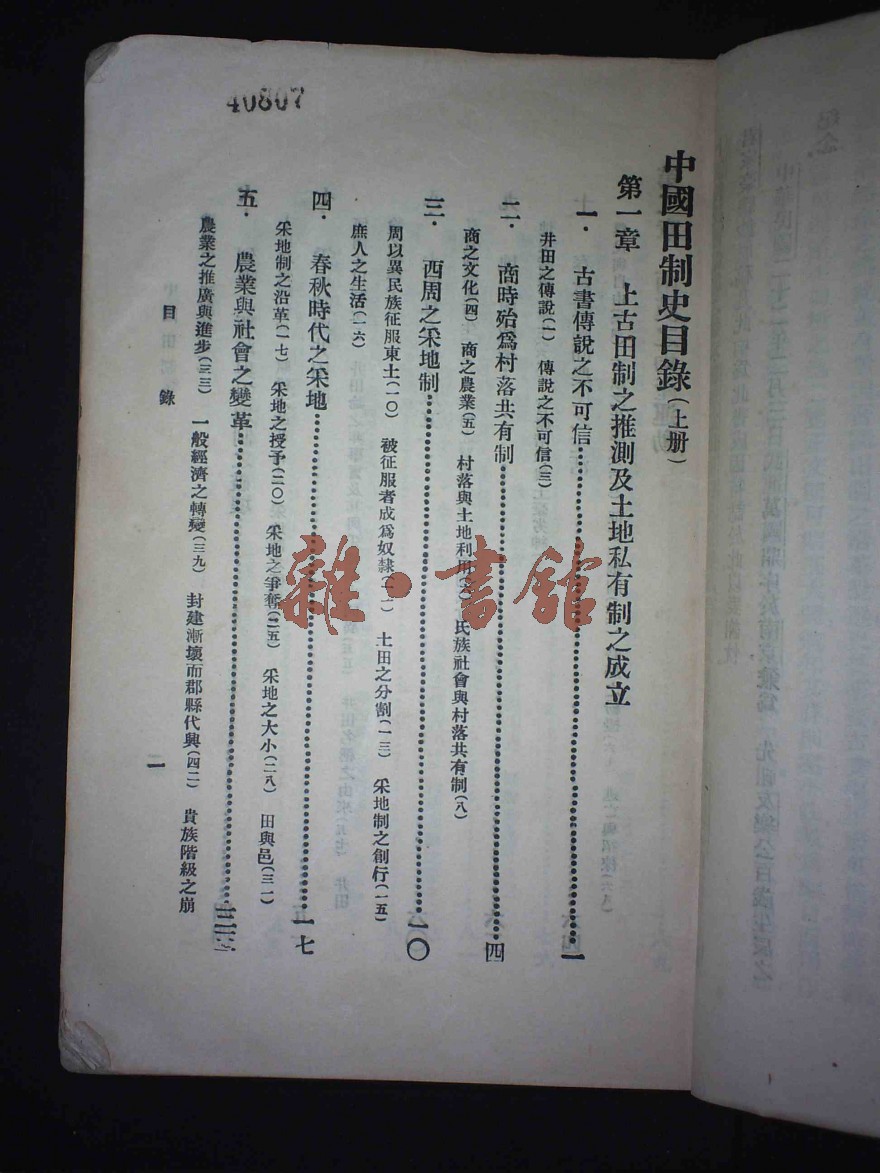 40807
中國田制史目錄(上册)
第一章　上古田制之推測及土地私有制之成立
一．古書傳說之不可信……一
井田之傳說(一)　傳說之不可信(三)
二．商時殆爲村落共有制……四
商之文化(四)　商之農業(五)　村落與土地利用　氏族社會與村落共有制(八)
三．西周之采地制……一〇
周以異民族征服東土(一〇)　被征服者成爲奴隸　土田之分割(一三)　采地制之創行(一五)
庶人之生活(一六)
四．春秋時代之采地……一七
采地制之沿革(一七)　采地之授予(二〇)　采地之爭奪(二五)　采地之大小(二八)　田與邑(三一)
五．農業與社會之變革……三三
農業之推廣與進步(三三)　一般經濟之轉變(三九)　封建漸壞而郡縣代興(四二)　貴族階級之崩
目錄
一
雜·書館